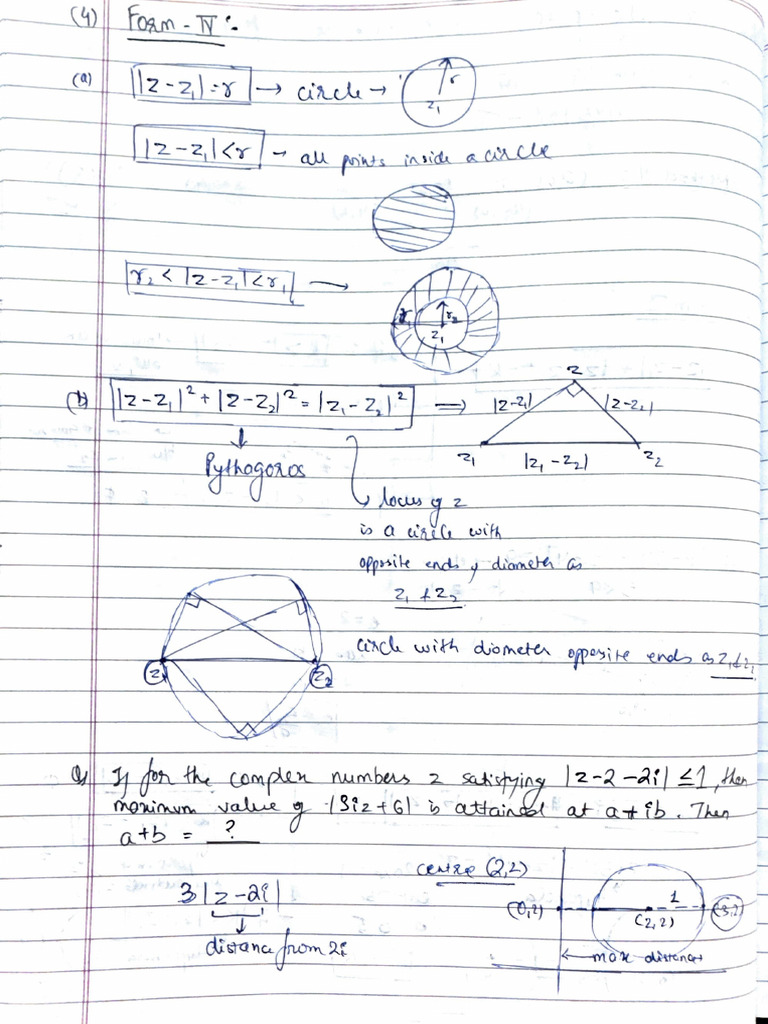 (4) Form - IV :-
(a) |z-z₁| = r → circle →
r
z₁
|z-z₁|<r → all points inside a circle
r₂ < |z-z₁| < r₁ →
r₁ r₂
z₁
(b) |z-z₁|² + |z-z₂|² = |z₁-z₂|² ⇒
z
|z-z₁| |z-z₂|
z₁ |z₁-z₂| z₂
↓
Pythogoros
↳ locus of z
is a circle with
opposite ends of diameter as
z₁ & z₂
circle with diameter opposite ends as z₁ & z₂
z₁ z₂
Q) If for the complex numbers z satisfying |z-2-2i| ≤ 1, then
maximum value of |3iz+6| is attained at a+ib. Then
a+b = ?
centre (2,2)
3|z-2i|
↓
distance from 2i
1
(0,2) (2,2) (3,2)
← max distance